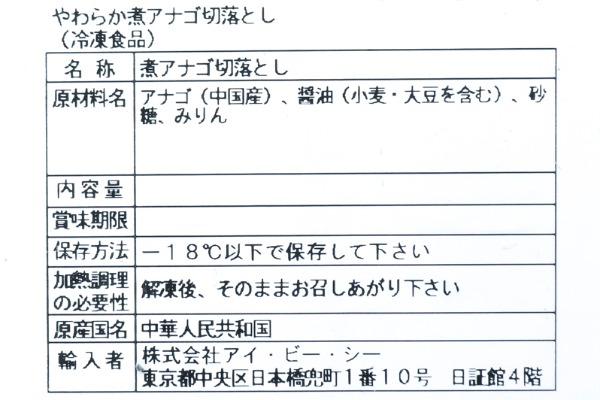 やわらか煮アナゴ切落とし
（冷凍食品）
名称 煮アナゴ切落とし
原材料名 アナゴ（中国産）、醤油（小麦・大豆を含む）、砂
糖、みりん
内容量
賞味期限
保存方法 －１８℃以下で保存して下さい
加熱調理
の必要性 解凍後、そのままお召しあがり下さい
原産国名 中華人民共和国
輸入者 株式会社アイ・ビー・シー
東京都中央区日本橋兜町１番１０号 日証館４階